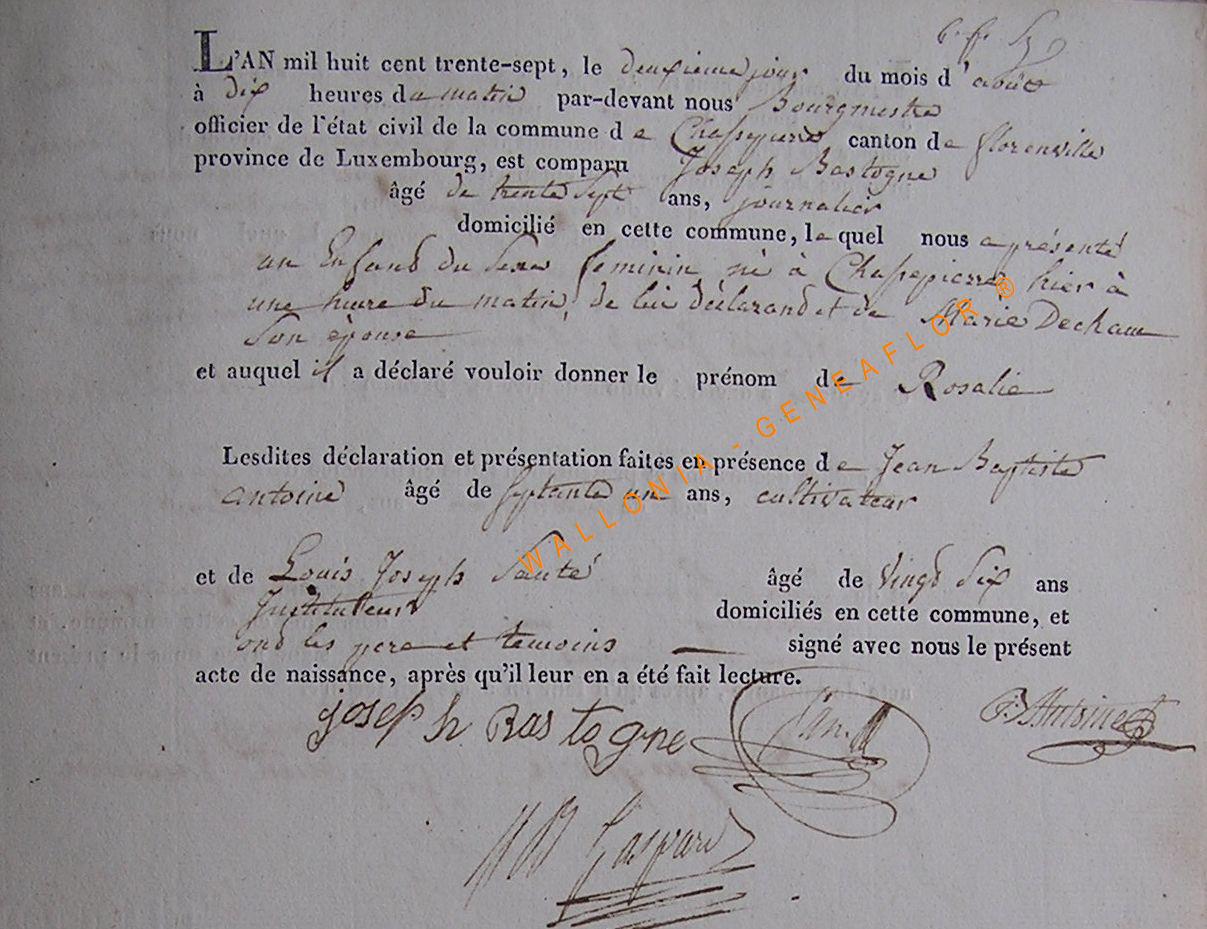 L'AN mil huit cent trente-sept, le deuxieme jour du mois d'août
à dix heures du matin par-devant nous Bourgmestre
officier de l'état civil de la commune de Chassepierre canton de florenville
province de Luxembourg, est comparu Joseph Bastogne
âgé de trente Sept ans, journalier
domicilié en cette commune, le quel nous a présenté
un Enfand du Sexe feminin né à Chassepierre hier à
une heure du matin, de lui déclarand et de Marie Decham
Son épouse
et auquel il a déclaré vouloir donner le prénom de Rosalie
Lesdites déclaration et présentation faites en présence de Jean Baptiste
antoine âgé de Septante un ans, cultivateur
et de Louis Joseph Santé âgé de Vingd Six ans
Instituteur domiciliés en cette commune, et
ond les pere et temoins signé avec nous le présent
acte de naissance, après qu'il leur en a été fait lecture.
joseph Bastogne JB Antoine
Gaspard
WALLONIA - GENEAFLOR ®